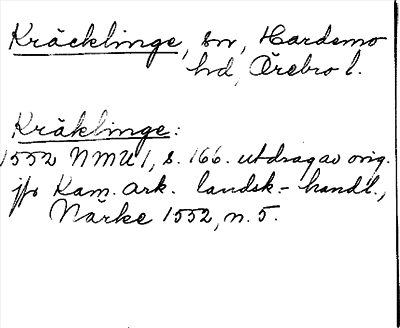 Kräcklinge, sn, Hardemo
hd, Örebro l.
Kräklinge:
1552 NMU 1, s. 166. utdrag av orig.
jfr Kam. Ark. landsk.- handl.,
Närke 1552, n. 5.